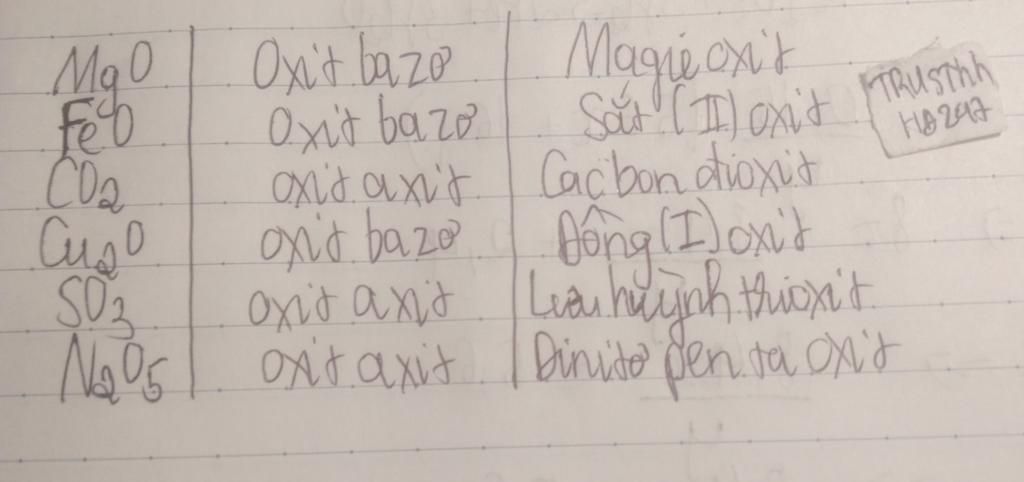 MgO Oxit bazơ Magie oxit
FeO Oxit bazơ Sắt (II) oxit
CO2 oxit axit Cacbon đioxit
Cu2O oxit bazơ Đồng (I) oxit
SO3 oxit axit Lưu huỳnh thioxit
N2O5 oxit axit Đinitơ pen ta oxit
TRUSThh
HB247